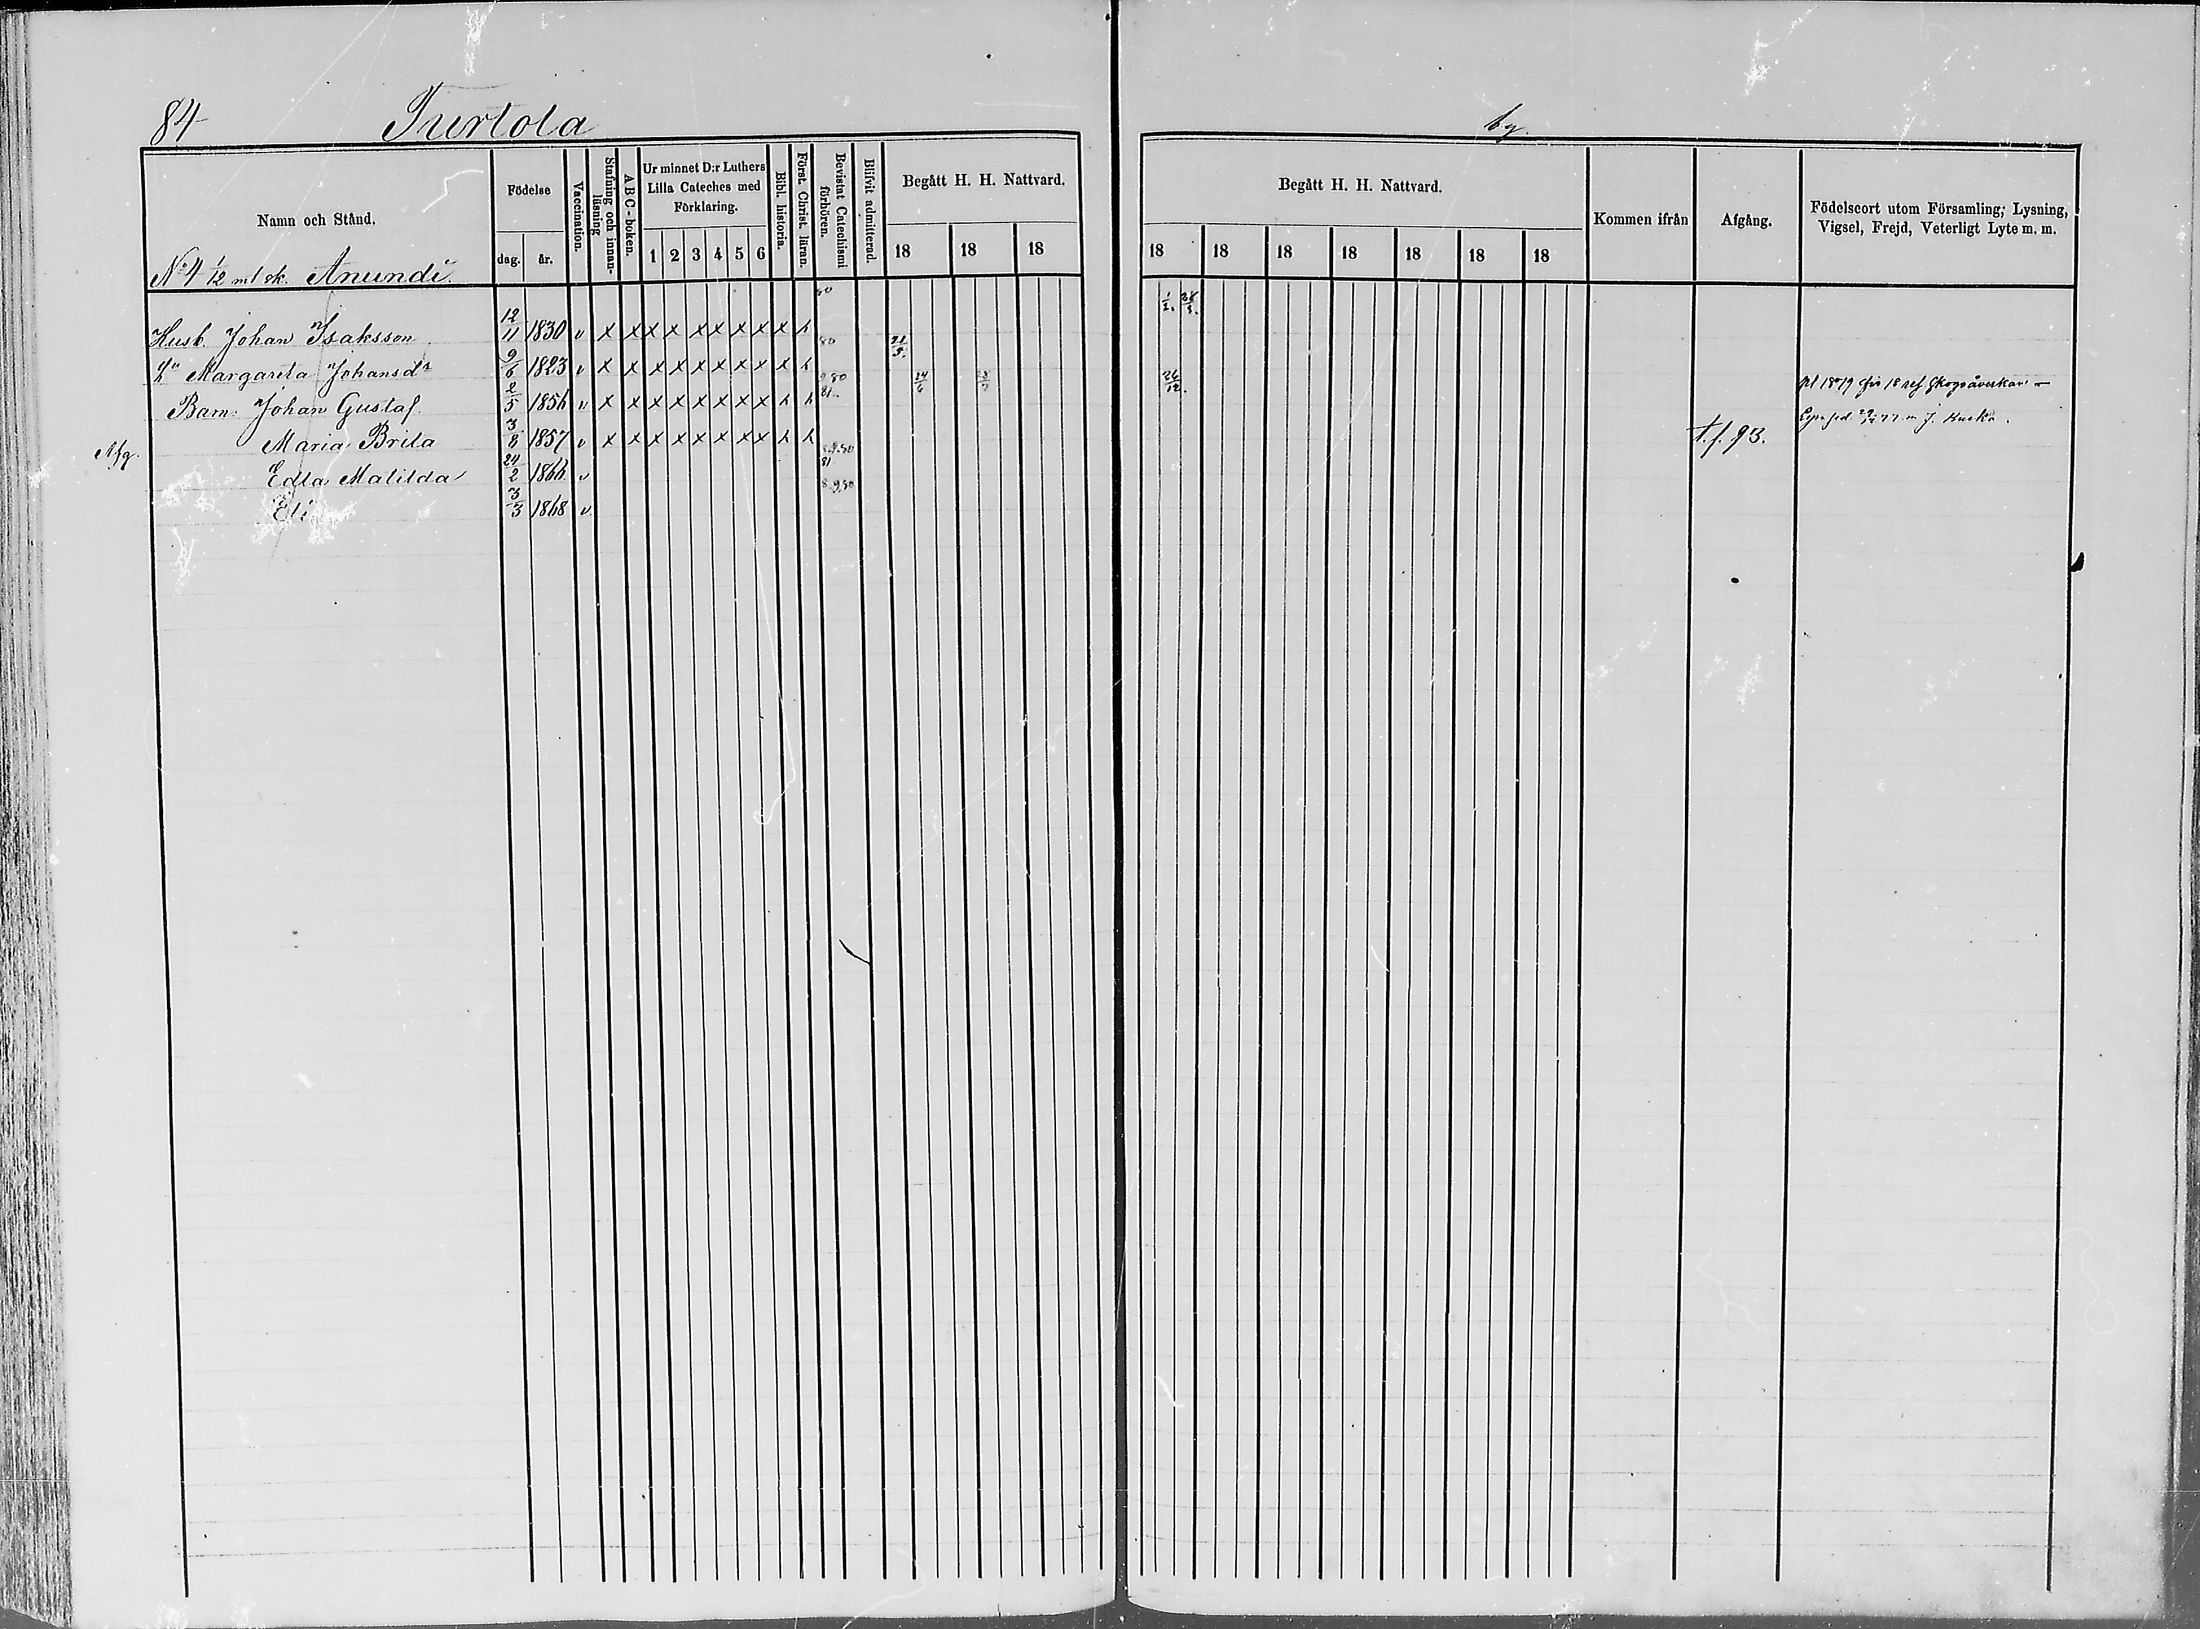 84 Turtola by.
Namn och Stånd.
Födelse
dag. år.
Vaccination.
Stafning och innanläsning
A B C-boken.
Ur minnet D:r Luthers Lilla Cateches med Förklaring.
1 2 3 4 5 6
Bibl. historia.
Först. Christ. läran.
Bevistat Catechismi förhören.
Blifvit admitterad.
Begått H. H. Nattvard.
18 18 18
Begått H. H. Nattvard.
18 18 18 18 18 18 18
Kommen ifrån
Afgång.
Födelseort utom Församling; Lysning, Vigsel, Frejd, Veterligt Lyte m. m.
No 4 1/2 mtl sk. Anundi.
Husb. Johan Isaksson 12/11 1830 v x x x x x x x x x 80 1/2. 28/3.
Margareta Johansdr 9/6 1823 v x x x x x x x x x 80 21/5.
Barn: Johan Gustaf 2/5 1856 v x x x x x x x x 9.80 81 24/6 26/12.
Afg. Maria Brita 3/8 1857 v x x x x x x x x t.f. 93.
Edla Matilda 24/2 1866 v 81
Eli 3/3 1868 v 8.9.80